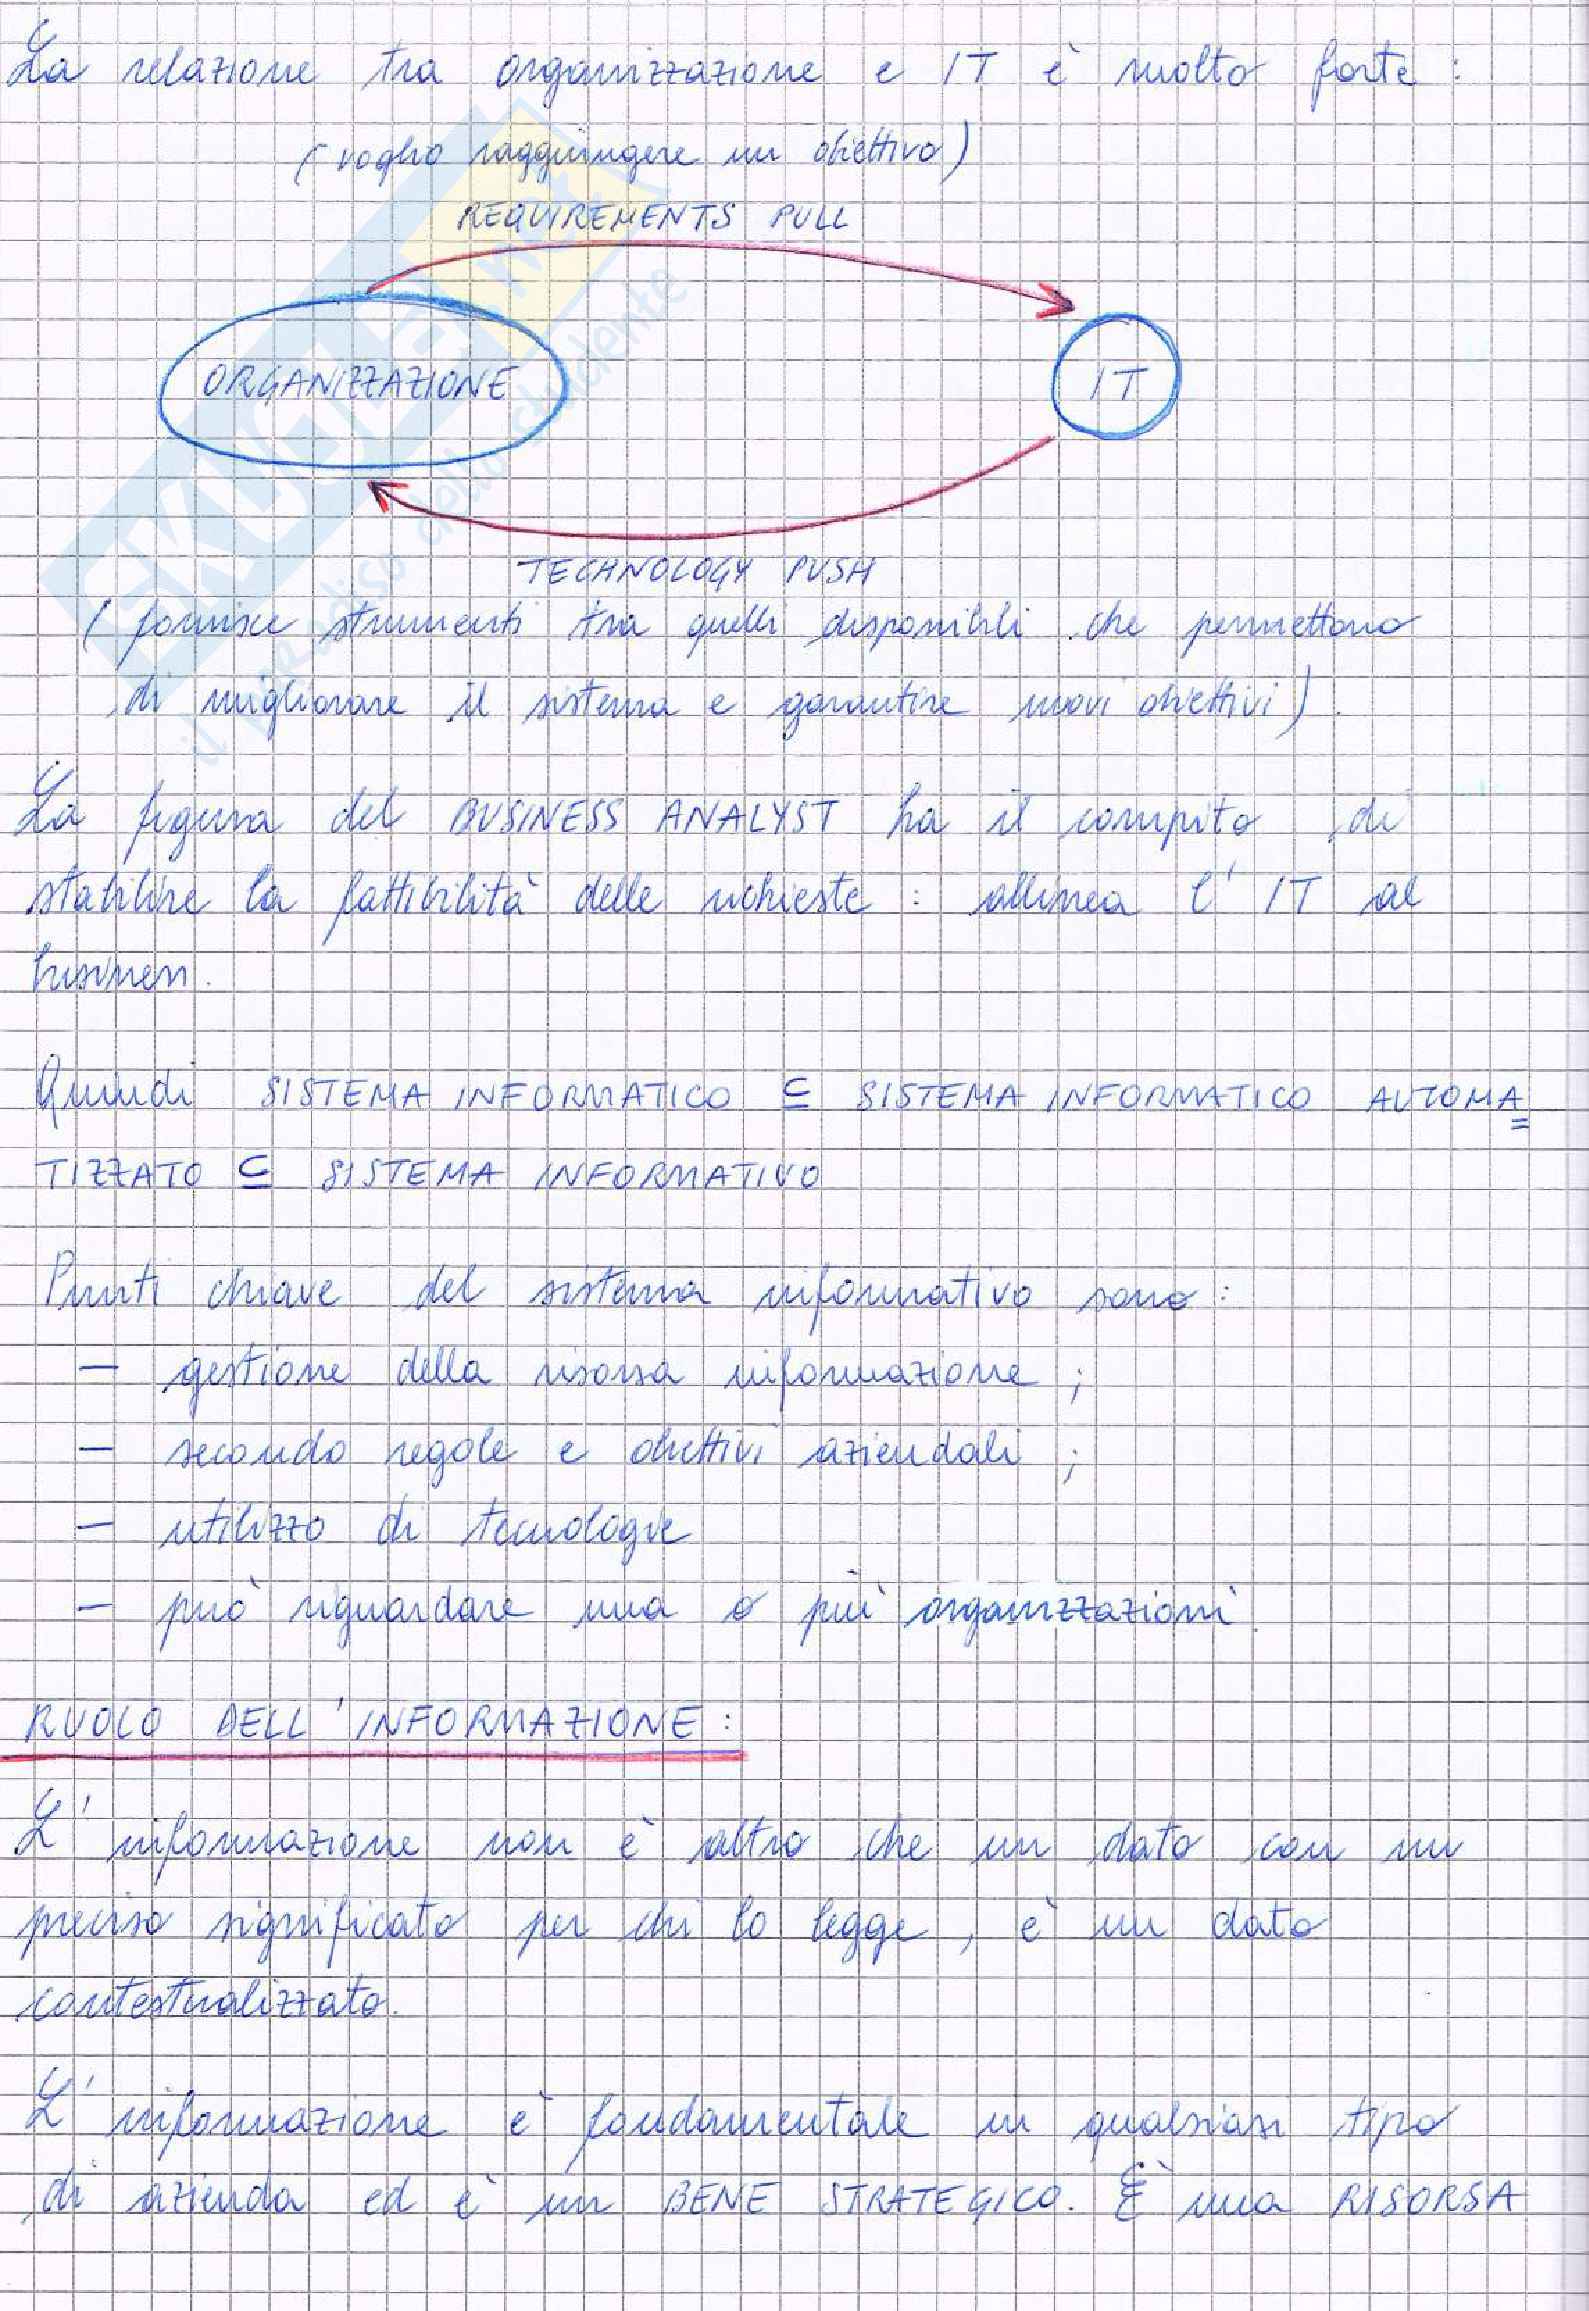 La relazione tra organizzazione e IT è molto forte :
( voglio raggiungere un obiettivo )
REQUIREMENTS PULL
ORGANIZZAZIONE
IT
TECHNOLOGY PUSH
( fornisce strumenti tra quelli disponibili che permettono
di migliorare il sistema e garantire nuovi obiettivi ) .
La figura del BUSINESS ANALYST ha il compito di
stabilire la fattibilità delle richieste : allinea l' IT al
business .
Quindi SISTEMA INFORMATICO ⊆ SISTEMA INFORMATICO AUTOMA=
TIZZATO ⊆ SISTEMA INFORMATIVO
Punti chiave del sistema informativo sono :
- gestione della risorsa informazione ;
- secondo regole e obiettivi aziendali ;
- utilizzo di tecnologie
- può riguardare una o più organizzazioni .
RUOLO DELL'INFORMAZIONE :
L' informazione non è altro che un dato con un
preciso significato per chi lo legge , è un dato
contestualizzato .
L' informazione è fondamentale in qualsiasi tipo
di azienda ed è un BENE STRATEGICO . È una RISORSA
SKUOLA.net
il paradiso dello studente